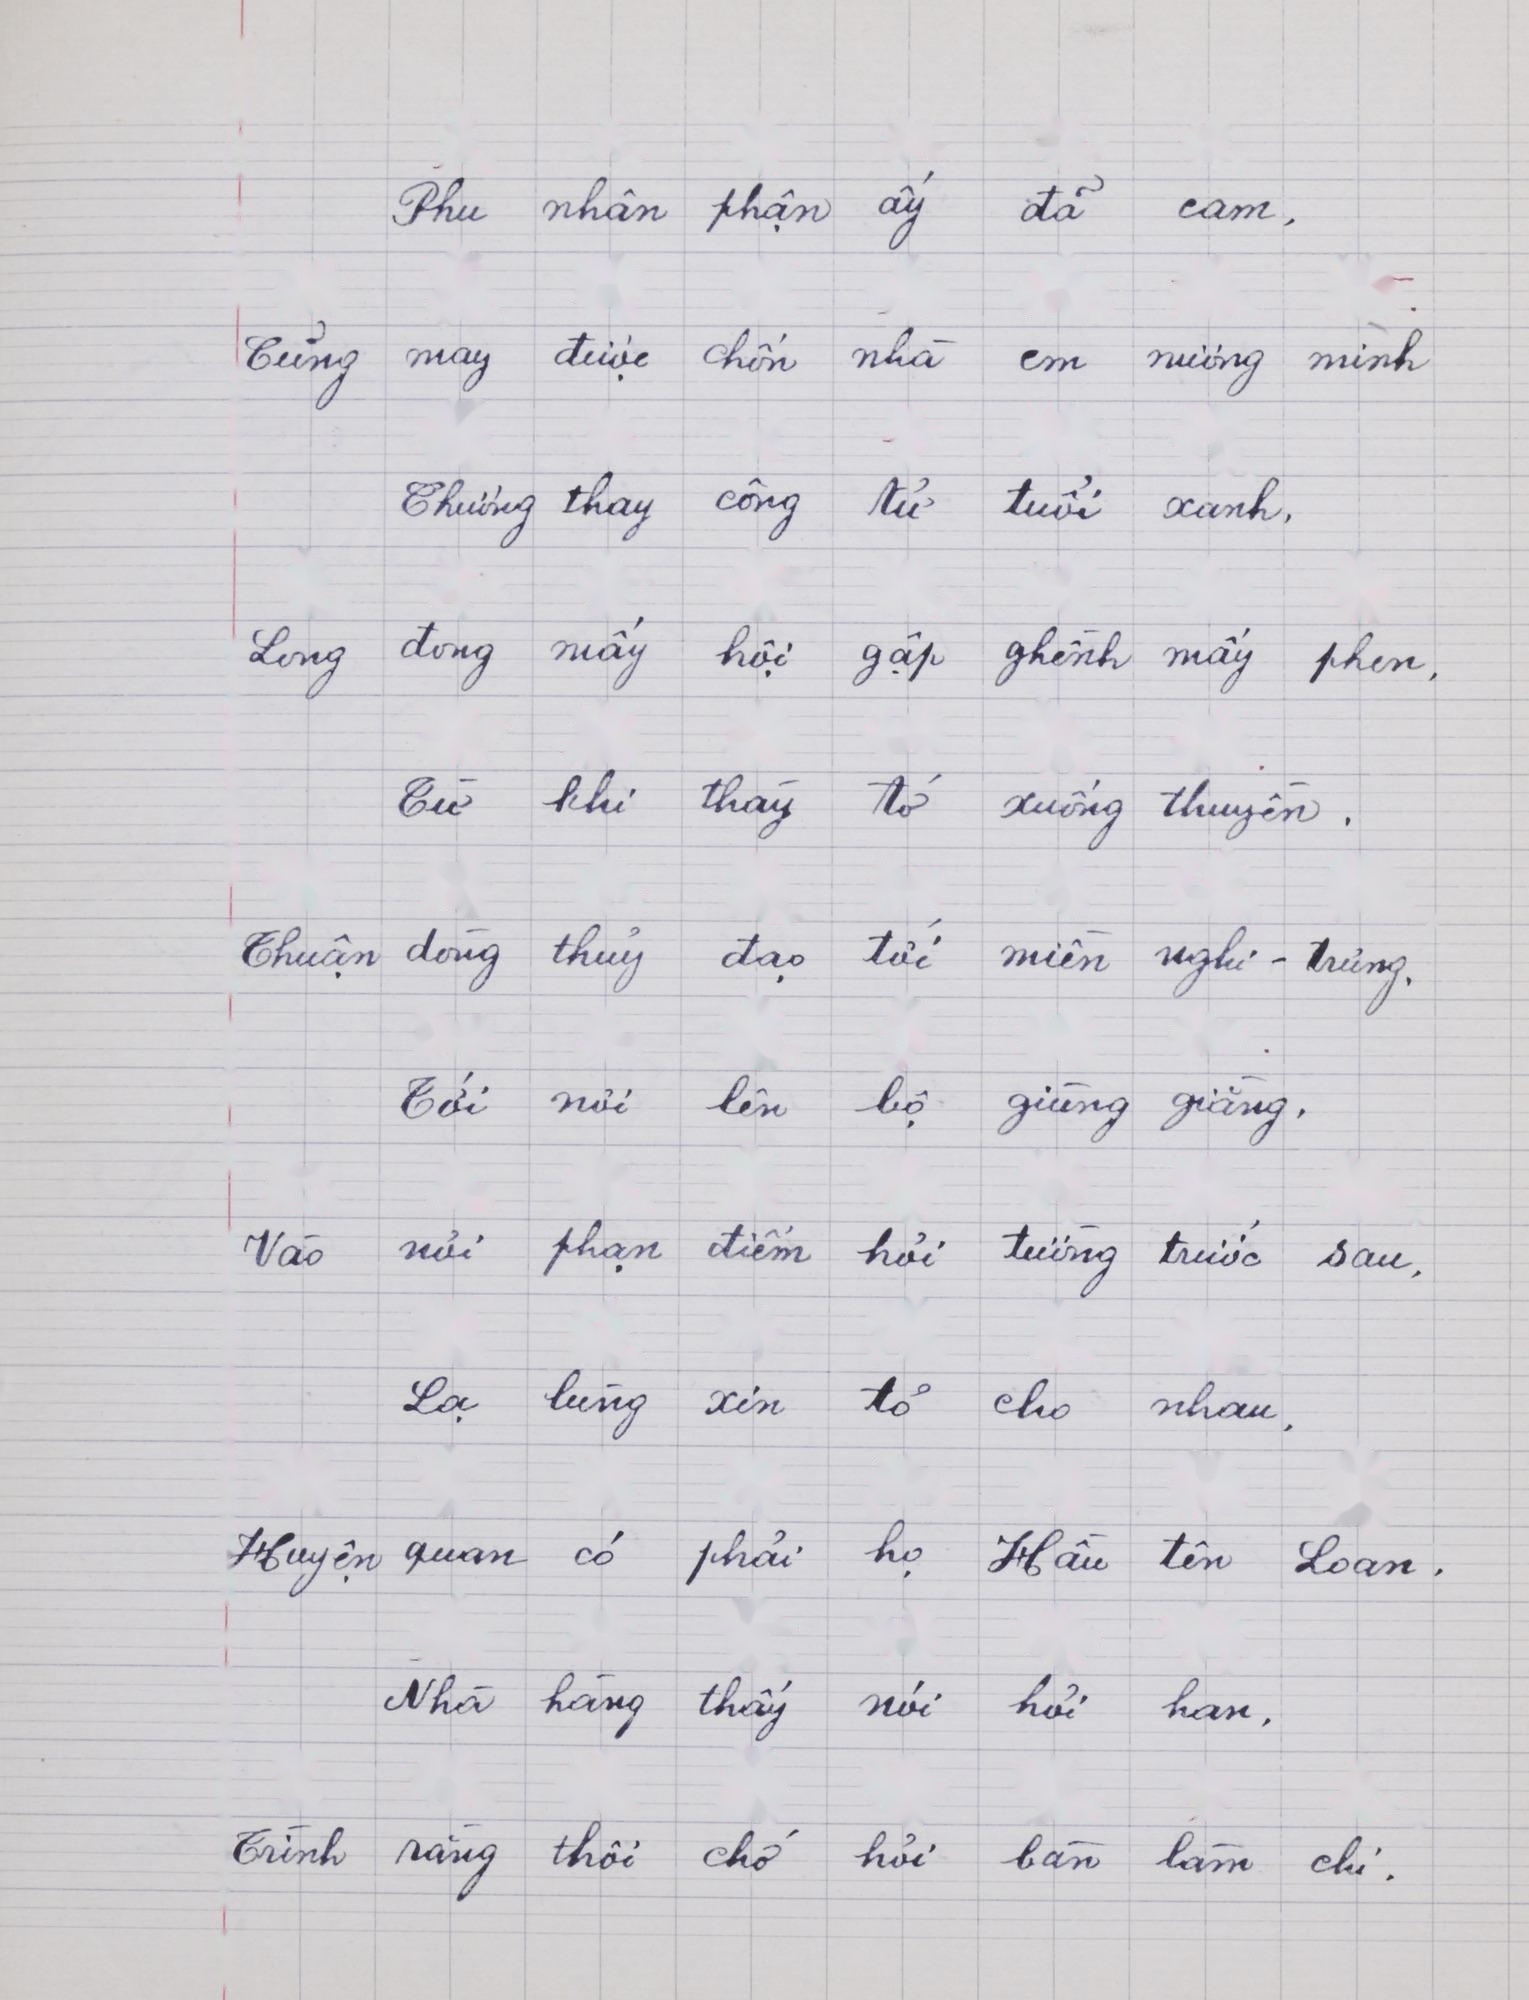 Phu nhân phận ấy đã cam.
Củng may được chốn nhà em nương mình
Thương thay công tử tuổi xanh.
Long đong mấy hội gập ghềnh mấy phen.
Từ khi thầy tớ xuống thuyền.
Thuận dòng thủy đạo tới miền nghi - trưng.
Tới nơi lên bộ giùng giằng.
Vào nơi phạn điếm hỏi tường trước sau.
Lạ lùng xin tỏ cho nhau.
Huyện quan có phải họ Hầu tên Loan.
Nhà hàng thấy nói hỏi han.
Trình rằng thôi chớ hỏi bàn làm chi.